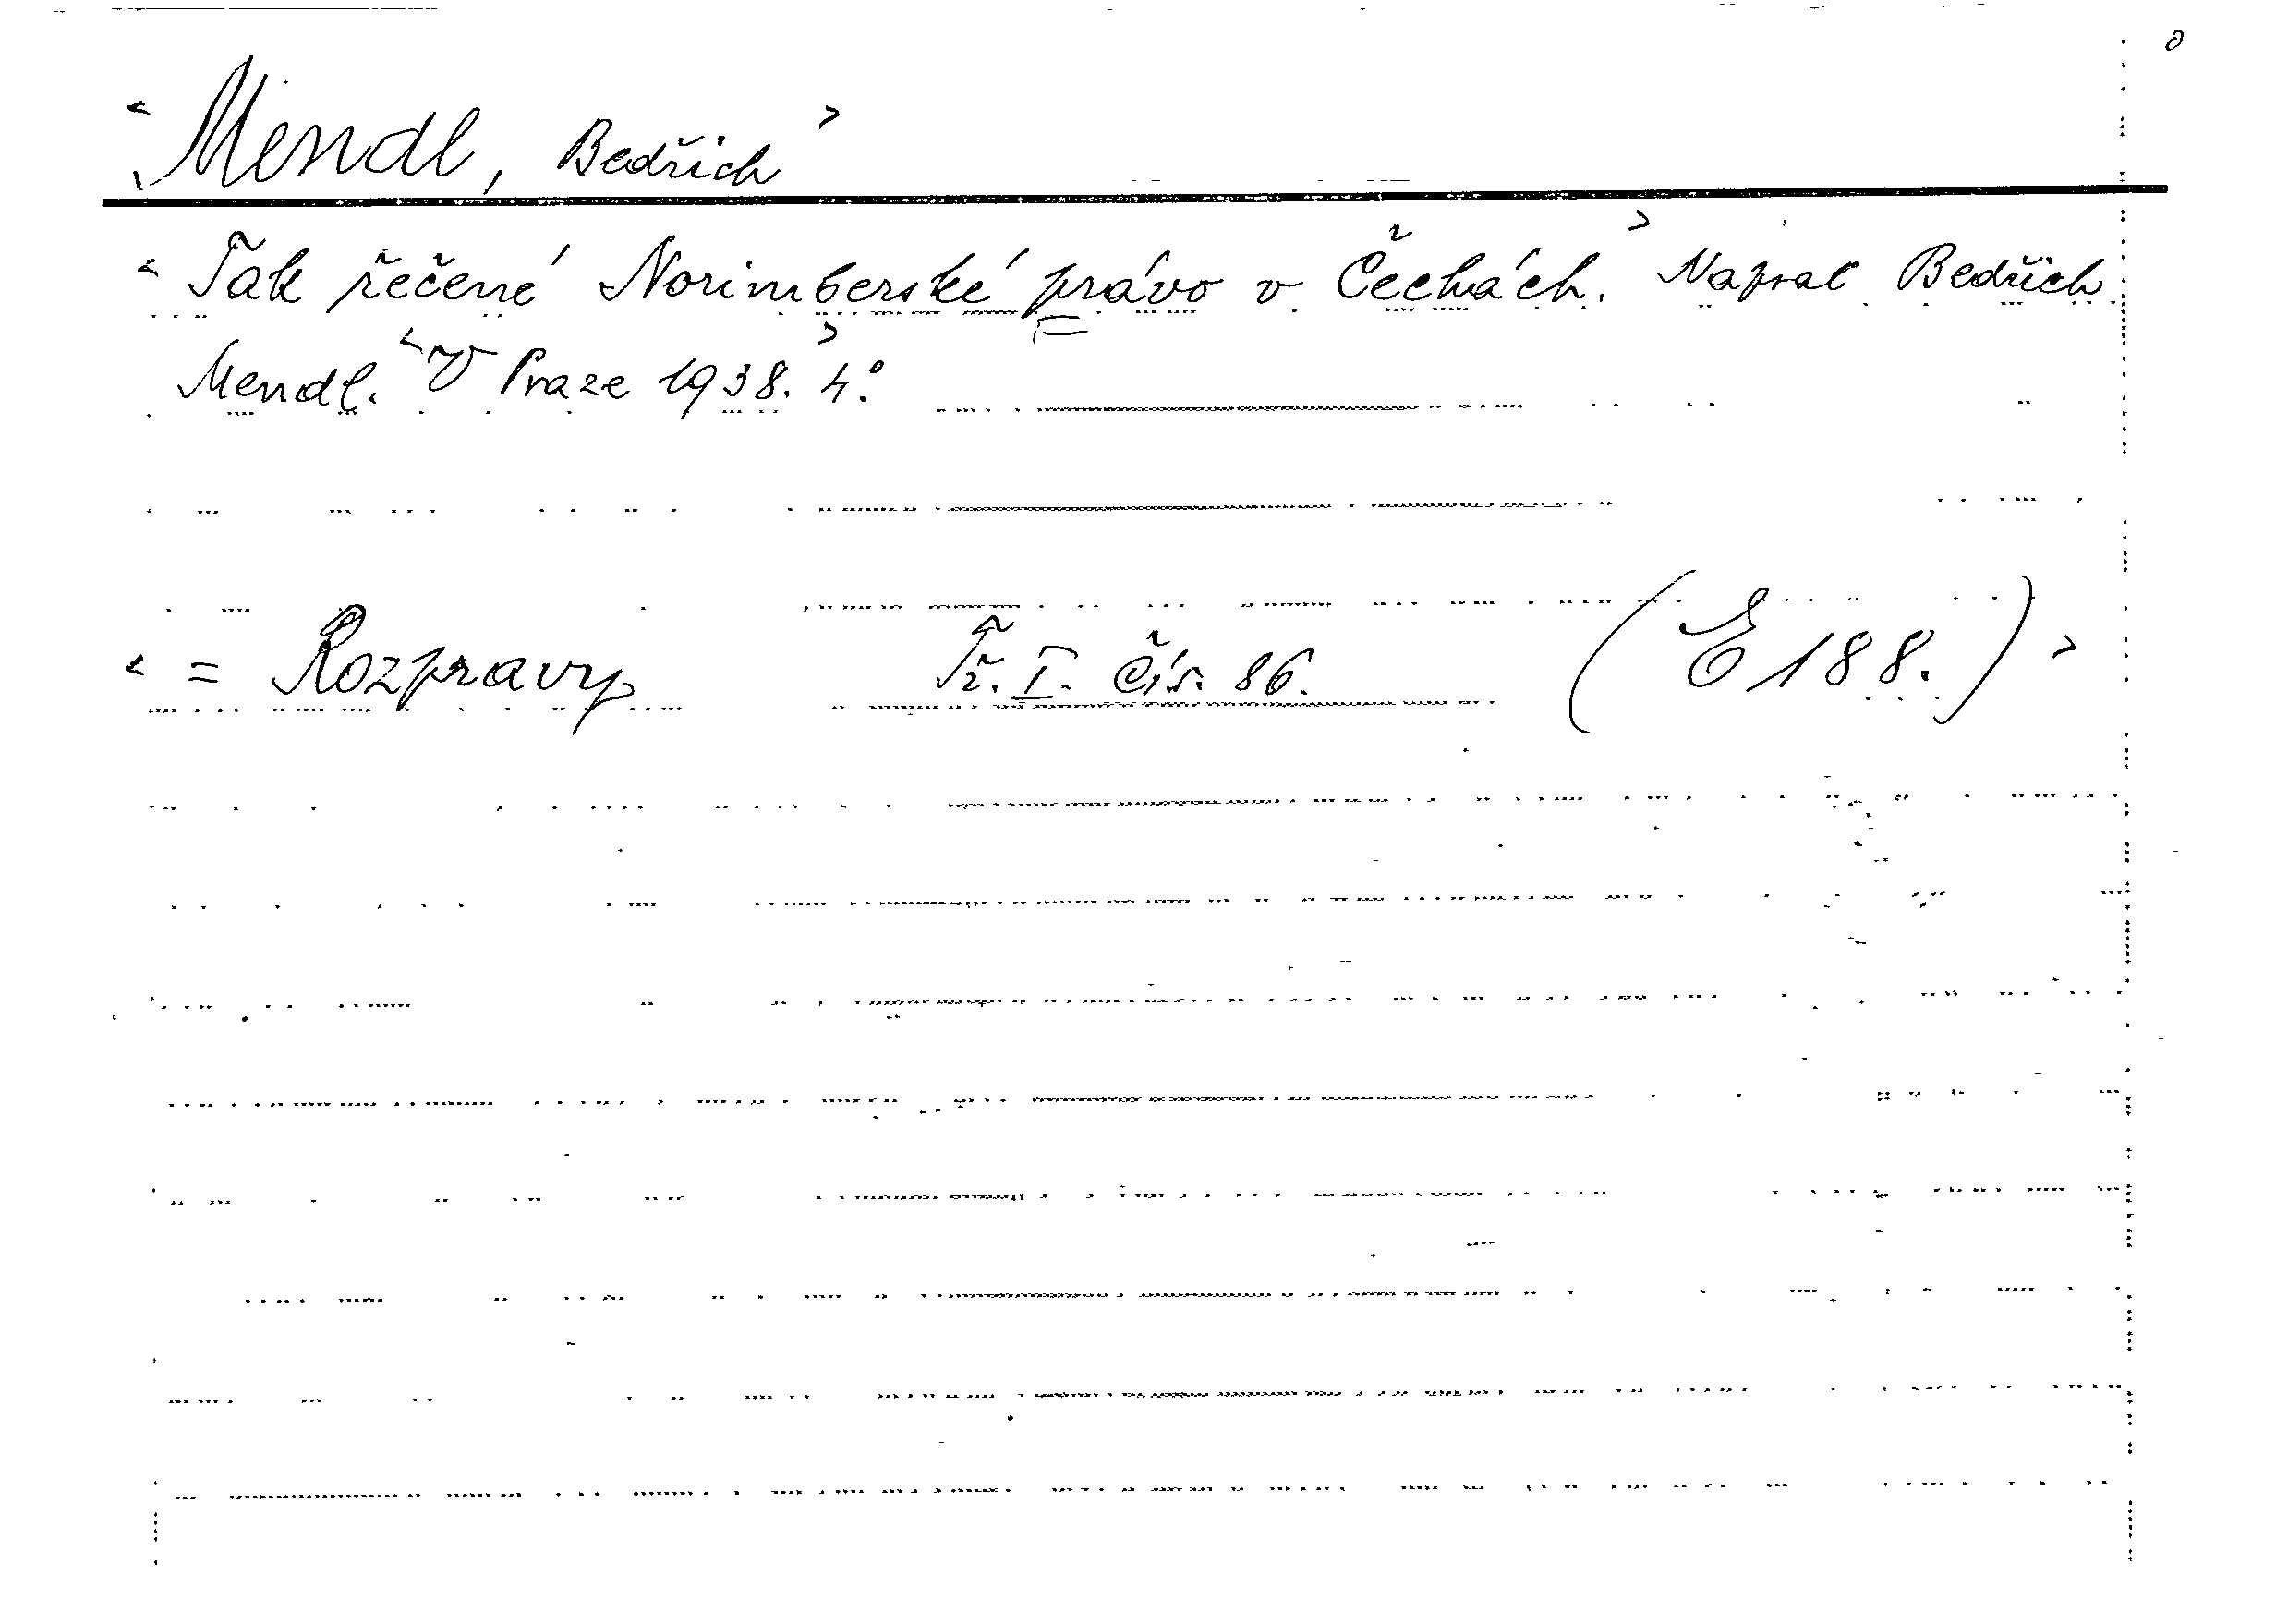 <Mendl, Bedřich>
<Tak řečené Norimberské právo v Čechách.> Napsal Bedřich
Mendl. <V Praze 1938.> 4°.
<= Rozpravy Tř. I. Čís. 86. (E 188.)>